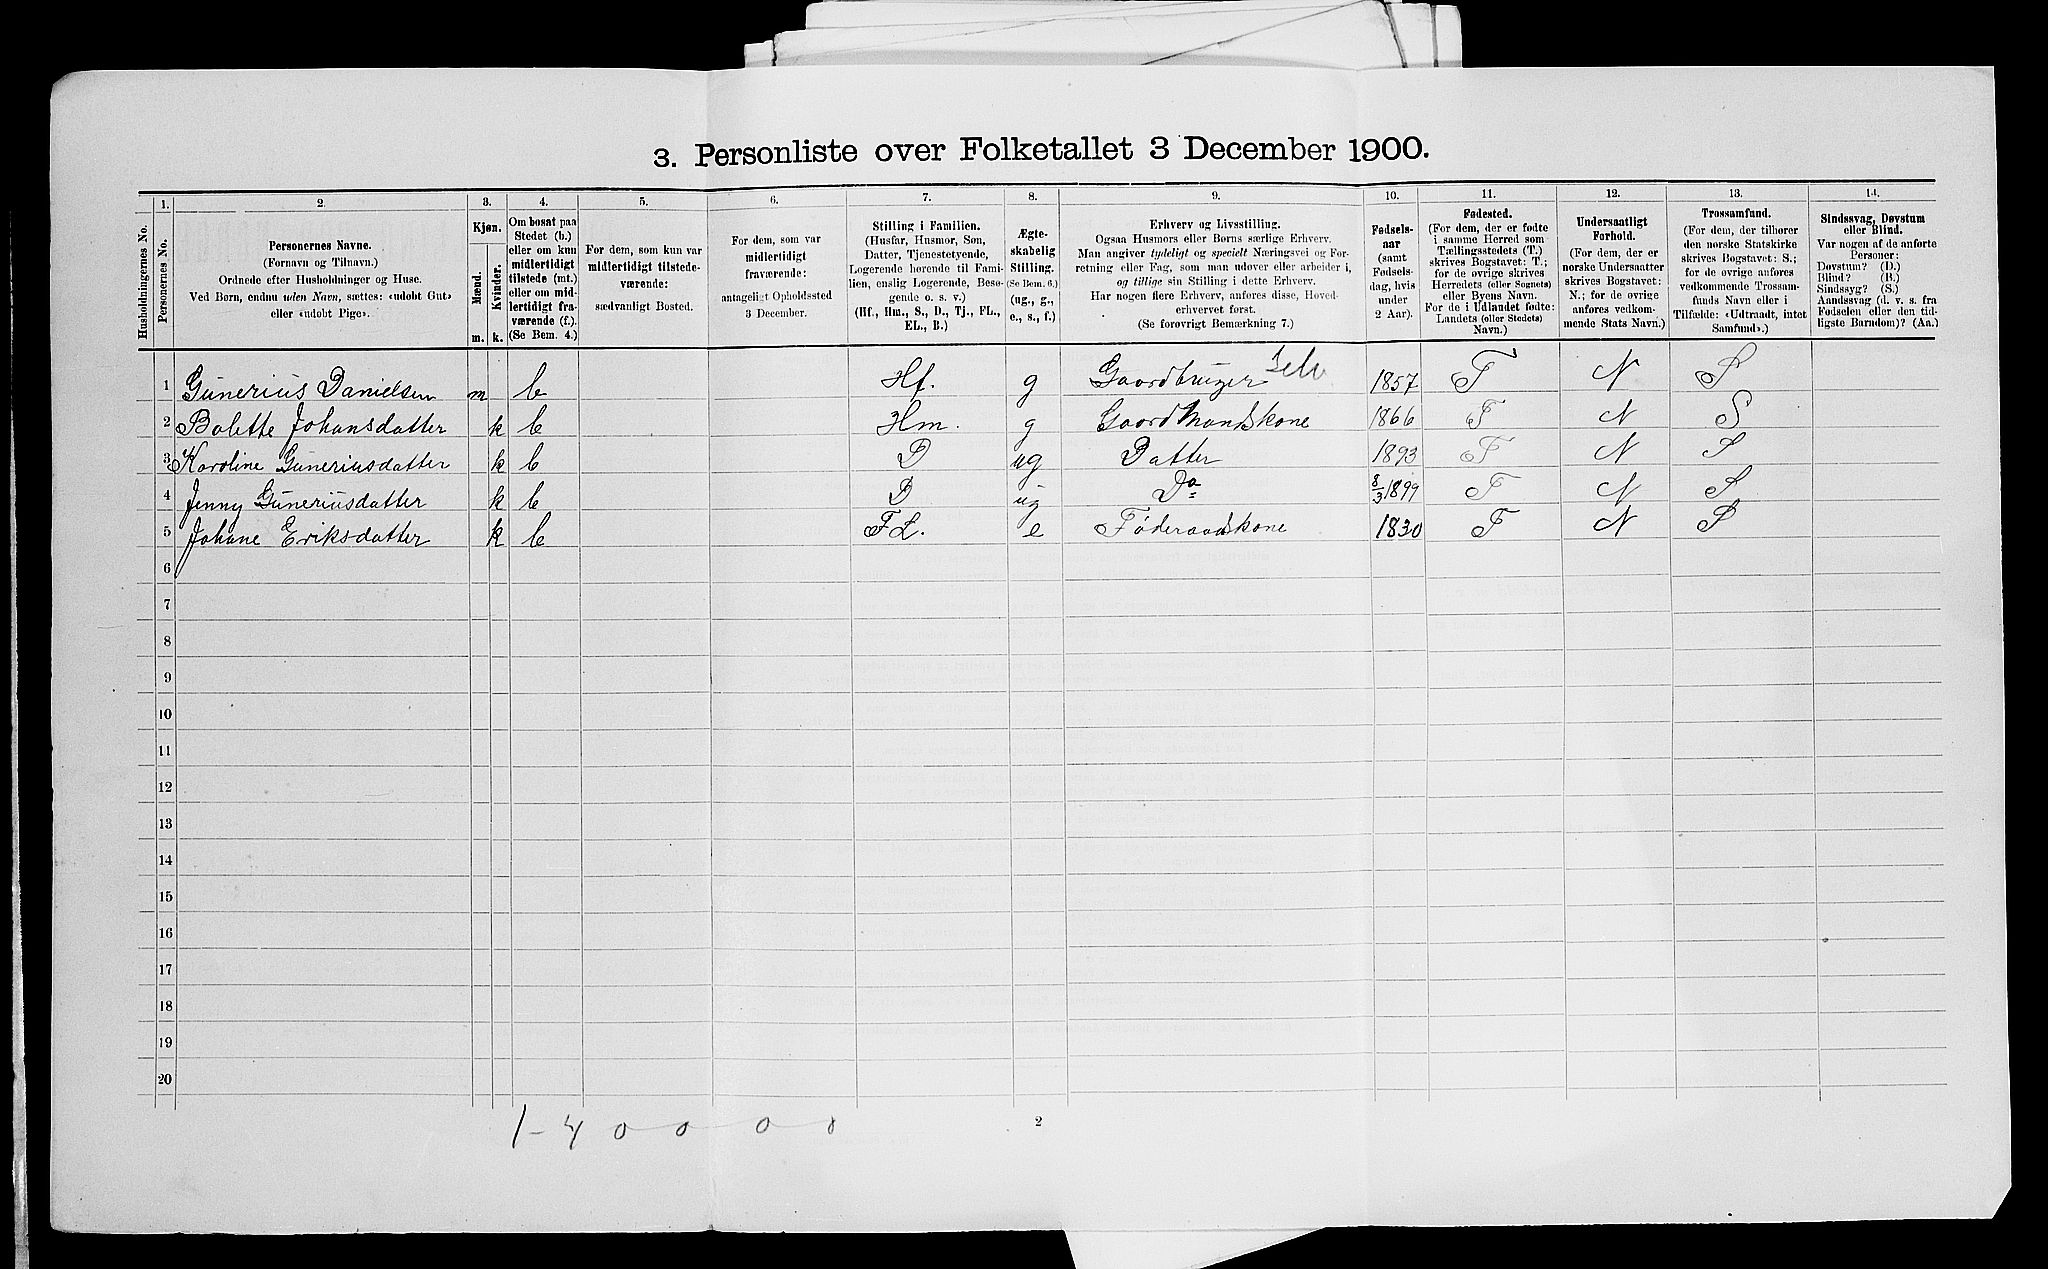 3. Personliste over Folketallet 3 December 1900.
1. 2. 3. 4. 5. 6. 7. 8. 9. 10. 11. 12. 13. 14.
Husholdningernes No.
Personernes No.
Personernes Navne.
(Fornavn og Tilnavn.)
Ordnede efter Husholdninger og Huse.
Ved Børn, endnu uden Navn, sættes: «udobt Gut»
eller «udobt Pige».
Kjøn.
Mænd.
Kvinder.
m. k.
Om bosat paa
Stedet (b.)
eller om kun
midlertidigt
tilstede (mt.)
eller om mid-
lertidigt fra-
værende (f.).
(Se Bem. 4.)
For dem, som kun var
midlertidigt tilstede-
værende:
sædvanligt Bosted.
For dem, som var
midlertidigt
fraværende:
antageligt Opholdssted
3 December.
Stilling i Familien.
(Husfar, Husmor, Søn,
Datter, Tjenestetyende,
Logerende hørende til Fami-
lien, enslig Logerende, Besø-
gende o. s. v.)
(Hf., Hm., S., D., Tj., FL.,
EL., B.)
Ægte-
skabelig
Stilling.
(Se Bem. 6.)
(ug., g.,
e., s., f.)
Erhverv og Livsstilling.
Ogsaa Husmors eller Børns særlige Erhverv.
Man angiver tydeligt og specielt Næringsvei og For-
retning eller Fag, som man udøver eller arbeider i,
og tillige sin Stilling i dette Erhverv.
Har nogen flere Erhverv, anføres disse, Hoved-
erhvervet først.
(Se forøvrigt Bemærkning 7.)
Fødsels-
aar
(samt
Fødsels-
dag, hvis
under
2 Aar).
Fødested.
(For dem, der er fødte
i samme Herred som
Tællingsstedets (T.)
skrives Bogstavet: T.;
for de øvrige skrives
Herredets (eller Sognets)
eller Byens Navn.
For de i Udlandet fødte:
Landets (eller Stedets)
Navn.)
Undersaatligt
Forhold.
(For dem, der er
norske Undersaatter
skrives Bogstavet:
N.; for de øvrige
anføres vedkom-
mende Stats Navn.)
Trossamfund.
(For dem, der tilhører
den norske Statskirke
skrives Bogstavet: S.;
for de øvrige anføres
vedkommende Trossam-
funds Navn eller i
Tilfælde: «Udtraadt, intet
Samfund».)
Sindssvag, Døvstum
eller Blind.
Var nogen af de anførte
Personer:
Døvstum? (D.)
Blind? (B.)
Sindssyg? (S.)
Aandssvag (d. v. s. fra
Fødselen eller den tid-
ligste Barndom)? (Aa.)
1 Gunerius Danielsen m b Hf. g Gaardbruger Selv 1857 T N S
2 Bolette Johansdatter k b Hm. g Gaardmandskone 1866 T N S
3 Karoline Guneriusdatter k b D ug Datter 1893 T N S
4 Jenny Guneriusdatter k b D ug Do 8/3 1899 T N S
5 Johane Eriksdatter k b FL. e Føderaadskone 1830 T N S
6
7
8
9
10
11
12
13
14
15
16
17
18
19
20
1-4 0 0 0 0
2